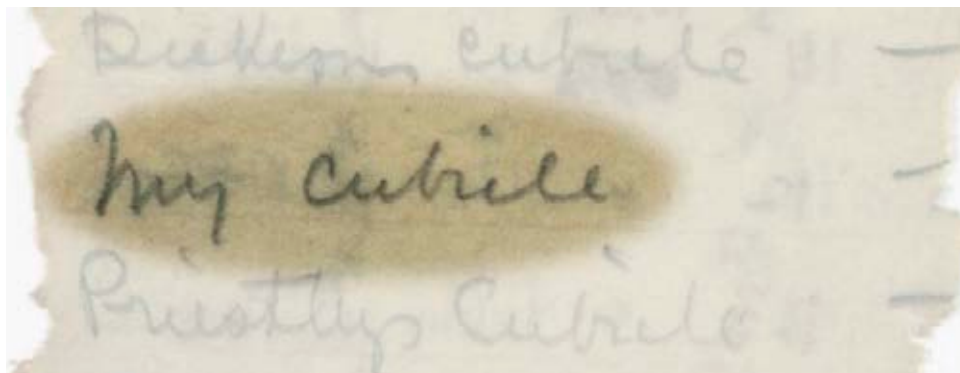 Dickson's Cubicle
My Cubicle
Priestly's Cubicle